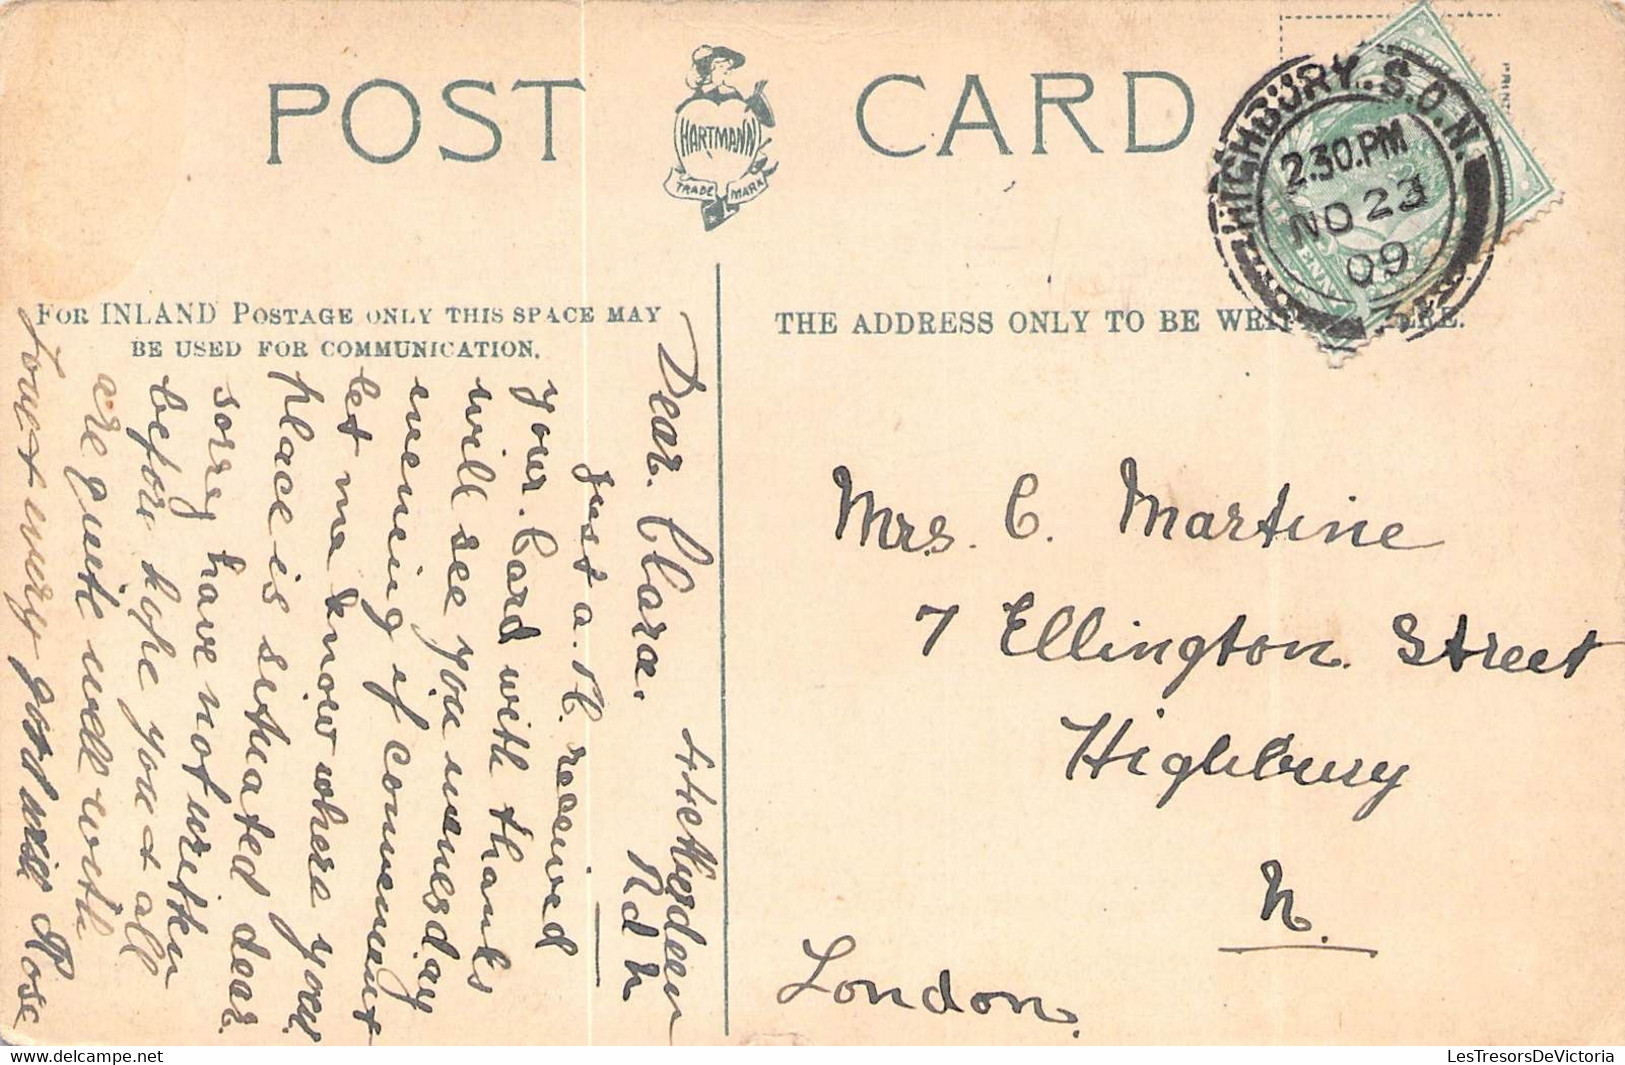 POST CARD
HARTMANN
TRADE MARK
HIGHBURY.S.O.N.
2.30.PM
NO 23
09
FOR INLAND POSTAGE ONLY THIS SPACE MAY
BE USED FOR COMMUNICATION.
THE ADDRESS ONLY TO BE WRI ERE.
44 Aberdeen
Rd N
Dear. Clara.
Just a. R. received
your. Card with thanks
will see you wenesday
evening if convenent
let me know where your
place is situated dear.
sorry have not writen
before hope you & all
are quite well with
Love & every good wish Rose
Mrs. C. Martine
7 Ellington. Street
Highbury
N.
London.
LesTresorsDeVictoria